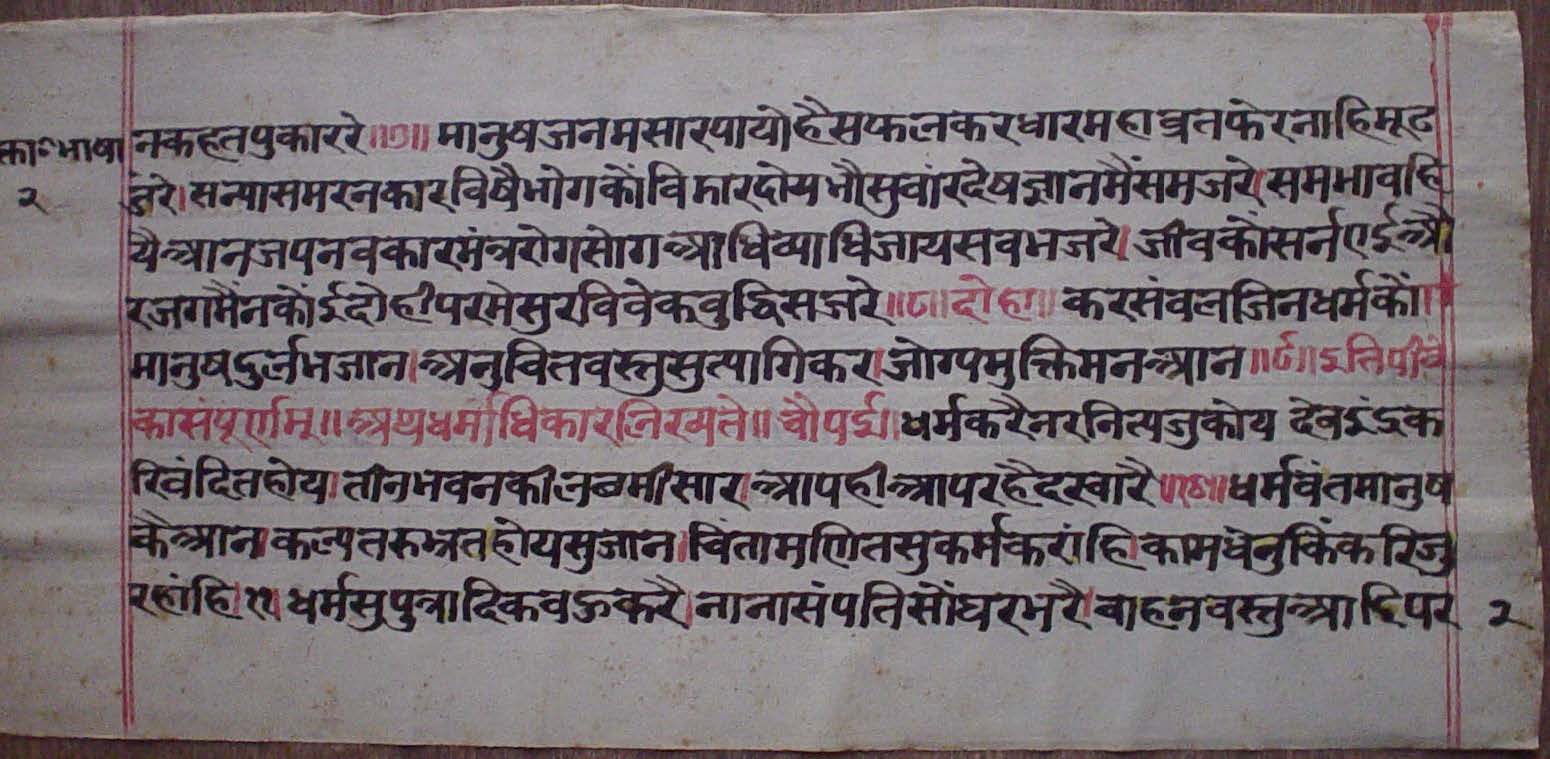 क्ता॰भाषा नकहतपुकाररे॥७॥ मानुषजनमसारपायोहैसफलकरधारमहाव्रतफेरनाहिमूढ
२ तुंरे। सन्यासमरनकारविषैभोगकौंविडारदोय भौसुवांरदेषज्ञानमैंसमजरे। समभावहि
यैआनजपनवकारमंत्ररोगसोगआधिव्याधिजायसवभजरे। जीवकौंसर्नएईऔ
रजगमैंनकोंईदोहीपरमेसुरविवेकवुद्धिसजरे॥८॥दोहा॥ करसंवलजिनधर्मकौं।
मानुषदुर्लभजान। अनुचितवस्तुसुत्यागिकर। जोग्यमुक्तिमनआन॥९॥इतिपीठ
कासंपूर्णम्॥अथधर्माधिकारलिख्यते॥चौपई॥ धर्मकरैनरनित्यजुकोय देवइंद्रक
रिवंदितहोय। तीनभवनकीलछमीसार। आपहीआपरहैदरवारै॥१०॥धर्मवंतमानुष
कैआन। कल्पतरुभ्रतहोयसुजान। चिंतामणितसुकर्मकरांहि। कामधेनुकिंकरिजु
रहांहि।११। धर्मसुपुत्रादिकवऊकरै। नानासंपतिसौंघरभरै। वाहनवस्तुआदिपर २